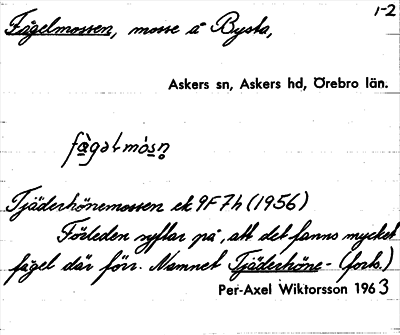 1-2
Fågelmossen, mosse å Bysta,
Askers sn, Askers hd, Örebro län.
fą̀gəlmósn̥
Tjäderhönemossen ek 9F7h (1956)
Förleden syftar på, att det fanns mycket
fågel där förr. Namnet Tjäderhöne- (forts.)
Per-Axel Wiktorsson 1963